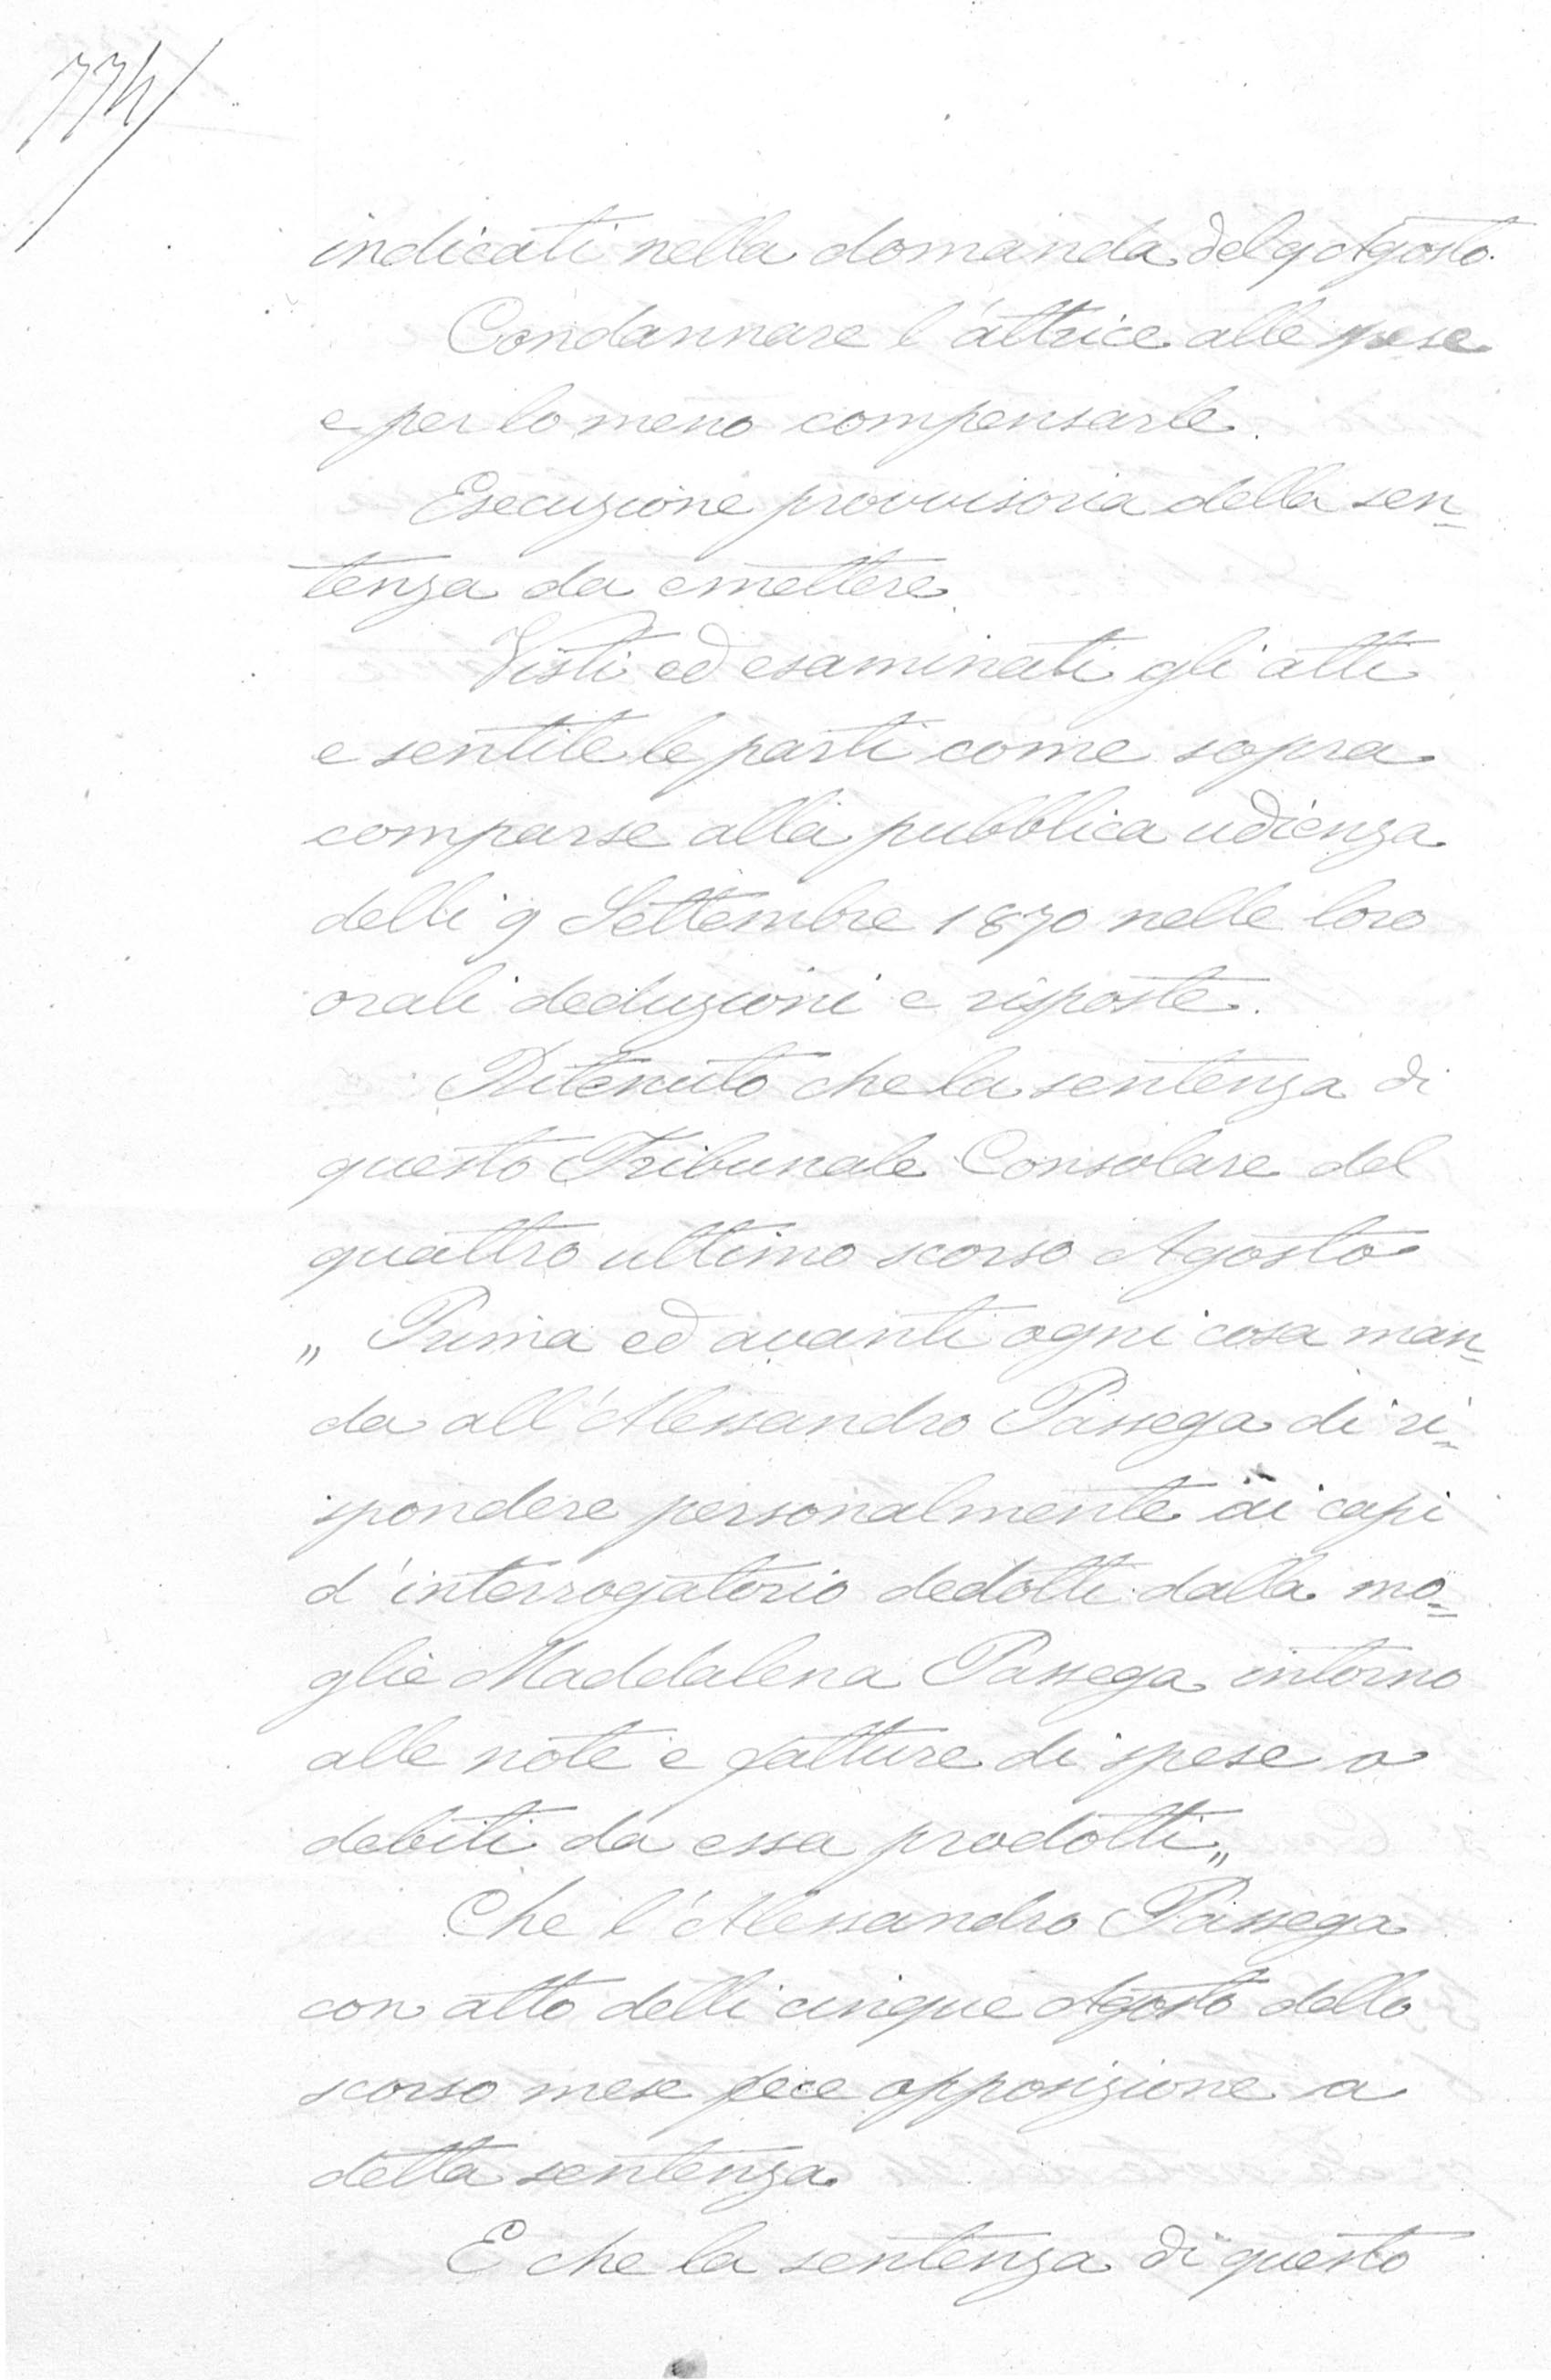 774
indicati nella domanda del 9 Agosto.
Condannare l'attrice alle spese
e per lo meno compensarle.
Esecuzione provvisoria della sen-
tenza da emettere.
Visti ed esaminati gli atti
e sentite le parti come sopra
comparse alla pubblica udienza
delli 9 Settembre 1870 nelle loro
orali deduzioni e risposte.
Ritenuto che la sentenza di
questo Tribunale Consolare del
quattro ultimo scorso Agosto
„ Prima ed avanti ogni cosa man-
da all'Alessandro Passega di ri-
spondere personalmente ai capi
d'interrogatorio dedotti dalla mo-
glie Maddalena Passega intorno
alle note e fatture di spese o
debiti da essa prodotti„
Che l'Alessandro Passega
con atto delli cinque Agosto dello
scorso mese fece opposizione a
detta sentenza.
E che la sentenza di questo